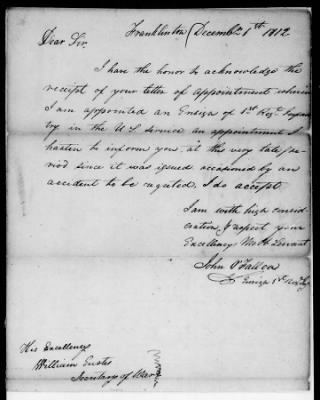 Franklinton December 1st 1812
Dear Sir
I have the honor to acknowledge the
receipt of your letter of appointment wherein
I am appointed an Ensign of 1st Regt. Infan
try in the U.S. service an appointment I
hasten to inform you "at the very late pe-
riod since it was issued occasioned by an
accident to be regreted, I do accept
I am with high consid
eration & respect your
Excellencys Mo. H. Servant
John O'Fallon
Ensign 1st Regt
His Excellency
William Eustis
Secretary of War